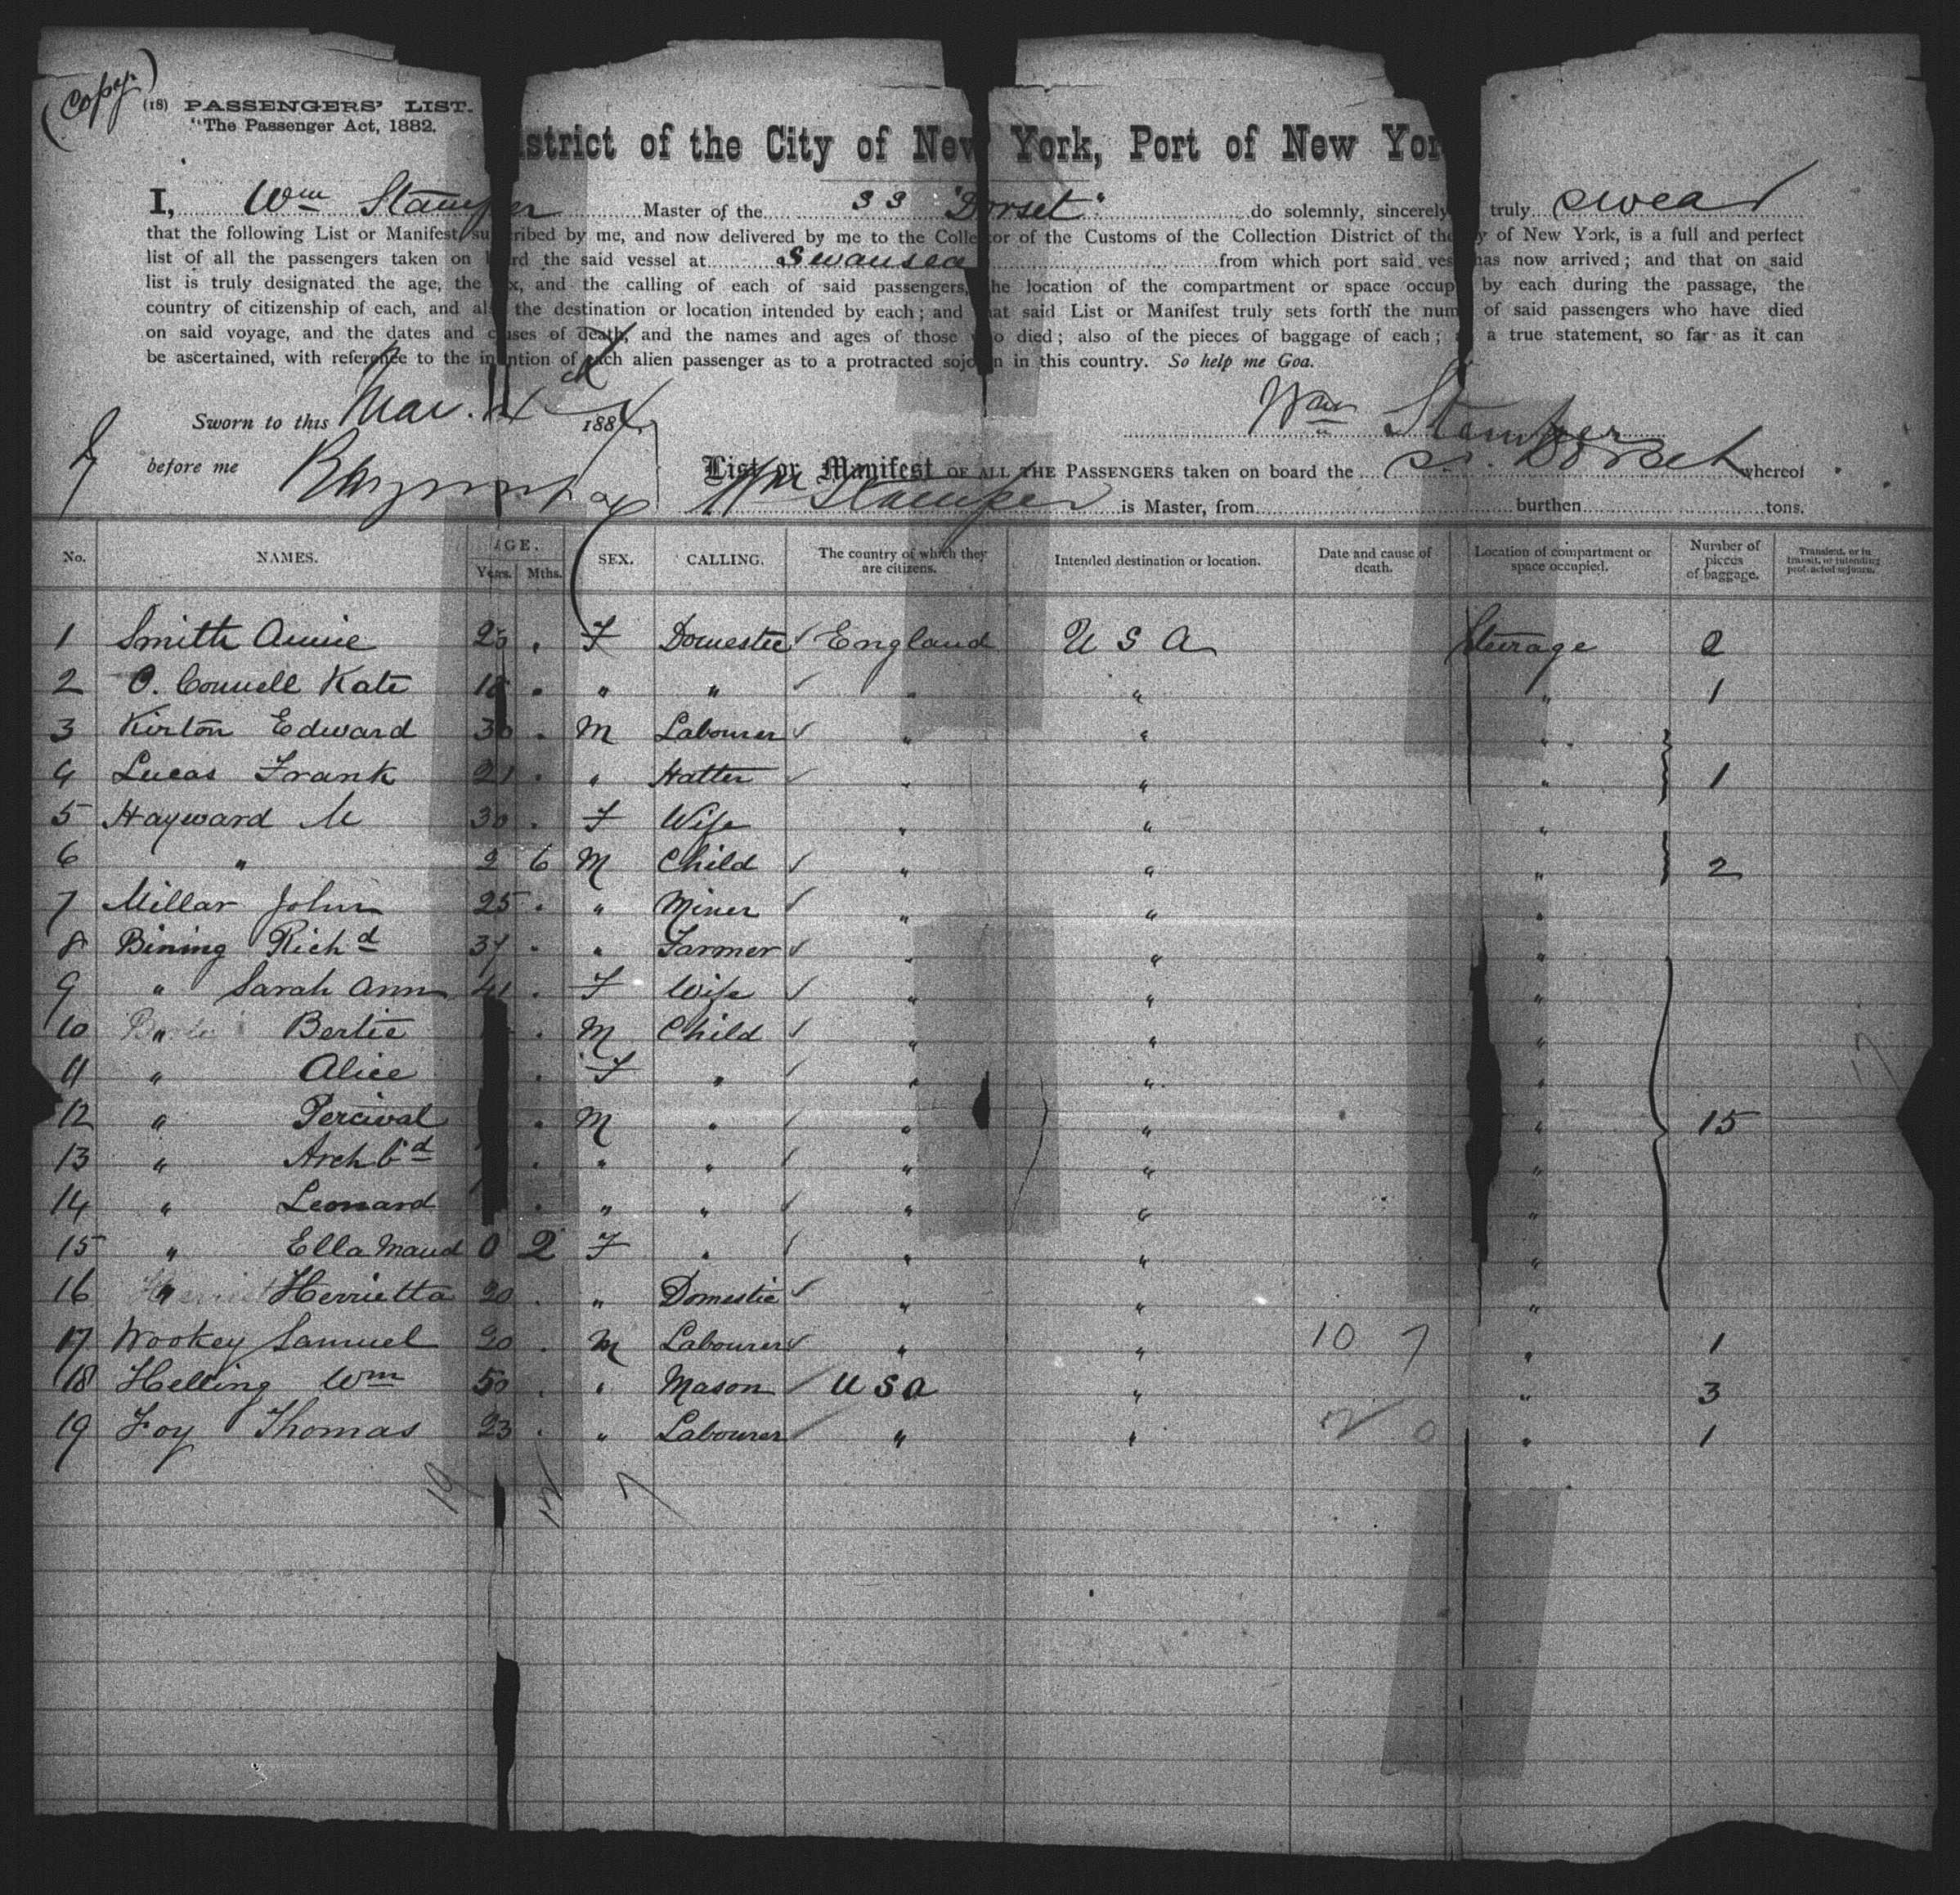 (Copy.)
(18) PASSENGERS' LIST.
"The Passenger Act, 1882.
istrict of the City of New York, Port of New Yor
I, Wm Stamper Master of the SS "Dorset" do solemnly, sincerely truly swear
that the following List or Manifest, su cribed by me, and now delivered by me to the Colle tor of the Customs of the Collection District of the y of New York, is a full and perfect
list of all the passengers taken on b rd the said vessel at Swansea from which port said ves has now arrived; and that on said
list is truly designated the age, the x, and the calling of each of said passengers, he location of the compartment or space occup by each during the passage, the
country of citizenship of each, and als the destination or location intended by each; and at said List or Manifest truly sets forth the num of said passengers who have died
on said voyage, and the dates and c uses of death, and the names and ages of those o died; also of the pieces of baggage of each; a true statement, so far as it can
be ascertained, with reference to the in ntion of each alien passenger as to a protracted sojo n in this country. So help me God.
Sworn to this Mar. 1884
Wm Stamper
before me
List or Manifest OF ALL THE PASSENGERS taken on board the S.S. Dorset whereof
Wm Stamper is Master, from burthen tons.
No. NAMES. AGE. Years. Mths. SEX. CALLING. The country of which they are citizens. Intended destination or location. Date and cause of death. Location of compartment or space occupied. Number of pieces of baggage. Transient, or in transit, or intending protracted sojourn.
1 Smith Annie 25 . F Domestic ✓ England U S A Steerage 2
2 O. Connell Kate 18 . " " ✓ " " " 1
3 Kirton Edward 30 . M Labourer ✓ " " "
4 Lucas Frank 21 . " Hatter ✓ " " " 1
5 Hayward M 30 . F Wife " " "
6 " 2 6 M Child ✓ " " " 2
7 Millar John 25 . " Miner ✓ " " "
8 Bining Richd 37 . " Farmer ✓ " " "
9 " Sarah Ann 41 . F Wife ✓ " " "
10 " Bertie . M Child ✓ " " "
11 " Alice . F " ✓ " " "
12 " Percival . M " ✓ " " " 15
13 " Archbd . " " ✓ " " "
14 " Leonard . " " ✓ " " "
15 " Ella Maud 0 2 F " ✓ " " "
16 " Herrietta 20 . " Domestic ✓ " " "
17 Wookey Samuel 20 . M Labourer ✓ " " 10 7 " 1
18 Helling Wm 50 . " Mason ✓ U S A " " 3
19 Foy Thomas 23 . " Labourer ✓ " " 2 0 " 1
19 12 7